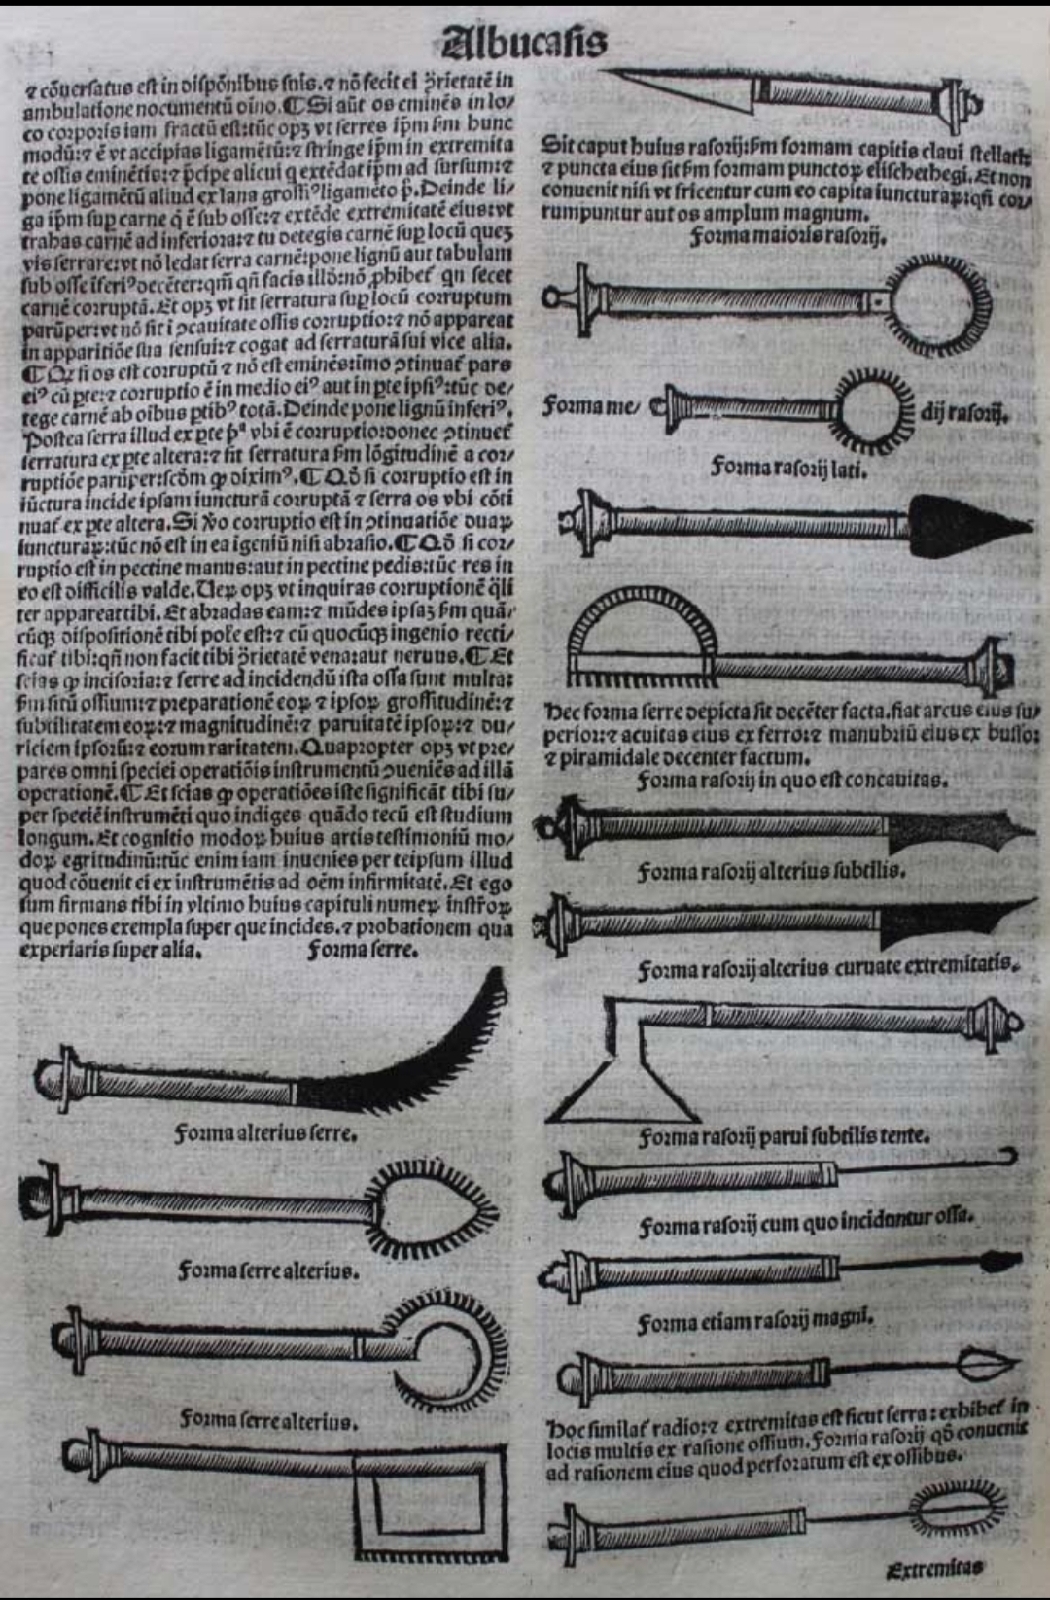 Albucasis
⁊ cõuersatus est in dispõnibus suis.⁊ nõ fecit ei ꝓ̃rietatẽ in
ambulatione nocumentũ oĩno.¶Si aũt os eminẽs in lo/
co corporis iam fractũ est:tũc opꝫ vt serres ip̃m ẜm hunc
modũ:⁊ ẽ vt accipias ligamẽtũ:⁊ stringe ip̃m in extremita
te ossis eminẽtis:⁊ p̃cipe alicui q extẽdat ip̃m ad sursum:⁊
pone ligamẽtũ aliud ex lana grossiꝰ ligamẽto p̃.Deinde li/
ga ip̃m sup carne q̃ ẽ sub osse:⁊ extẽde extremitatẽ eius:vt
trahas carnẽ ad inferiora:⁊ tu detegis carnẽ sup locũ queꝫ
vis serrare:vt nõ ledat serra carnẽ:pone lignũ aut tabulam
sub osse iferiꝰ decẽter:qm̃ qñ facis illð:nõ ꝓhibet̃ qn secet
carnẽ corruptã.Et opꝫ vt sit serratura sup locũ corruptum
parũper:vt nõ sit i ɔcauitate ossis corruptio:⁊ nõ appareat
in apparitiõe sua sensui:⁊ cogat ad serraturã sui vice alia.
¶Qð si os est corruptũ ⁊ nõ est eminẽs:imo ɔtinuat̃ pars
eiꝰ cũ ꝑte:⁊ corruptio ẽ in medio eiꝰ aut in ꝑte ipsiꝰ:tũc de/
tege carnẽ ab oĩbus ꝑtibꝰ totã.Deinde pone lignũ inferiꝰ.
Postea serra illud ex ꝑte pª vbi ẽ corruptio:donec ɔtinuet̃
serratura ex ꝑte altera:⁊ sit serratura ẜm lõgitudinẽ a cor/
ruptiõe parũper:scðm ꝙ diximꝰ.¶Qð si corruptio est in
iũctura incide ipsam iuncturã corruptã ⁊ serra os vbi cõti
nuat̃ ex ꝑte altera.Si ṽo corruptio est in ɔtinuatiõe duaꝝ
iuncturaꝝ:tũc nõ est in ea igeniũ nisi abrasio.¶Qð si cor/
ruptio est in pectine manus:aut in pectine pedis:tũc res in
eo est difficilis valde.Veꝝ opꝫ vt inquiras corruptionẽ q̃li
ter appareat tibi.Et abradas eam:⁊ mũdes ipsaꝫ ẜm quã/
cũqꝫ dispositionẽ tibi pole est:⁊ cũ quocũqꝫ ingenio recti/
ficat̃ tibi:qñ non facit tibi ꝓ̃rietatẽ vena:aut neruus.¶Et
scias ꝙ incisoria:⁊ serre ad incidendũ ista ossa sunt multa:
ẜm sitũ ossium:⁊ preparationẽ eoꝝ ⁊ ipsoꝝ grossitudinẽ:⁊
subtilitatem eoꝝ:⁊ magnitudinẽ:⁊ paruitatẽ ipsoꝝ:⁊ du/
riciem ipsorũ:⁊ eorum raritatem.Quapropter opꝫ vt pre/
pares omni speciei operatiõis instrumentũ ɔueniẽs ad illã
operationẽ.¶Et scias ꝙ operatiões iste significãt tibi su/
per speciẽ instrumẽti quo indiges quãdo tecũ est studium
longum.Et cognitio modoꝝ huius artis testimoniũ mo/
doꝝ egritudinũ:tũc enim iam inuenies per teipsum illud
quod cõuenit ei ex instrumẽtis ad oẽm infirmitatẽ.Et ego
sum firmans tibi in vltimo huius capituli numeꝝ instr̃oꝝ
que pones exempla super que incides.⁊ probationem qua
experiaris super alia. Forma serre.
Forma alterius serre.
Forma serre alterius.
Forma serre alterius.
Sit caput huius rasorij:ẜm formam capitis claui stellati:
⁊ puncta eius sit ẜm formam punctoꝝ elischethegi.Et non
conuenit nisi vt fricentur cum eo capita iuncturaꝝ:qñ cor/
rumpuntur aut os amplum magnum.
Forma maioris rasorij.
Forma me/ dij rasorij.
Forma rasorij lati.
Hec forma serre depicta sit decẽter facta.fiat arcus eius su/
perior:⁊ acuitas eius ex ferro:⁊ manubriũ eius ex busso:
⁊ piramidale decenter factum.
Forma rasorij in quo est concauitas.
Forma rasorij alterius subtilis.
Forma rasorij alterius curuate extremitatis.
Forma rasorij parui subtilis tente.
Forma rasorij cum quo incidantur ossa.
Forma etiam rasorij magni.
Hoc similat̃ radio:⁊ extremitas est sicut serra:exhibet̃ in
locis multis ex rasione ossium.Forma rasorij qð conuenit
ad rasionem eius quod perforatum est ex ossibus.
Extremitas